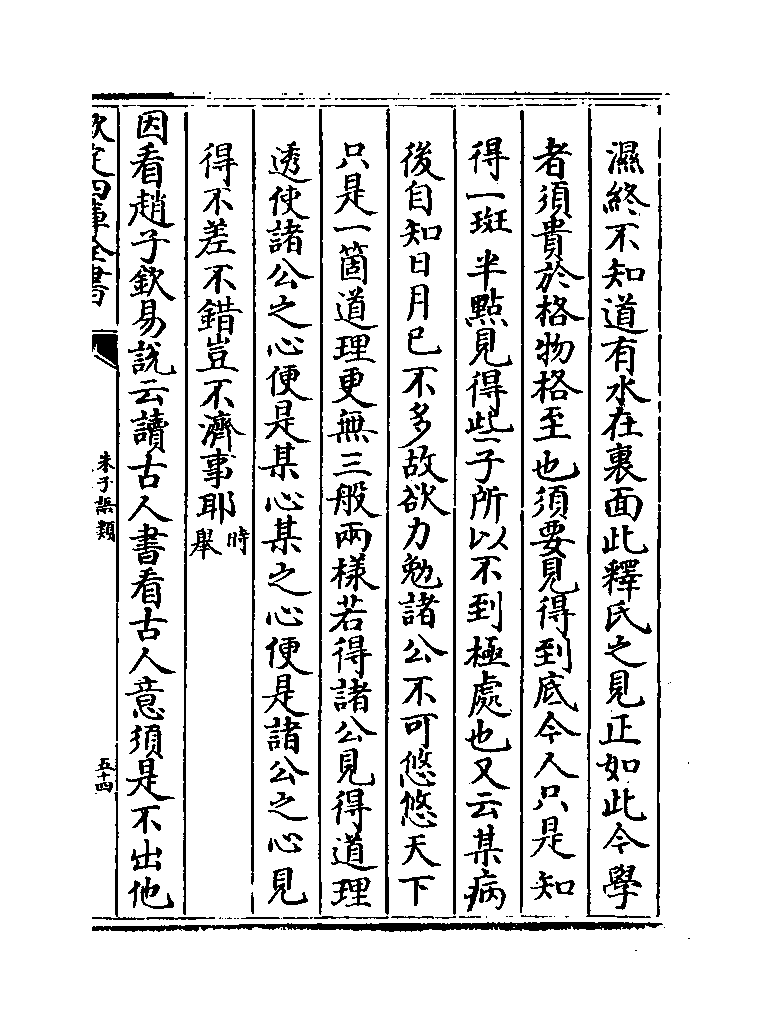 濕終不知道有水在裏面此釋氏之見正如此今學
者須貴於格物格至也須要見得到底今人只是知
得一斑半點見得些子所以不到極處也又云某病
後自知日月已不多故欲力勉諸公不可悠悠天下
只是一箇道理更無三般兩樣若得諸公見得道理
透使諸公之心便是某心某之心便是諸公之心見
得不差不錯豈不濟事耶時舉
因看趙子欽易說云讀古人書看古人意須是不出他
欽定四庫全書
朱子語類
五十四